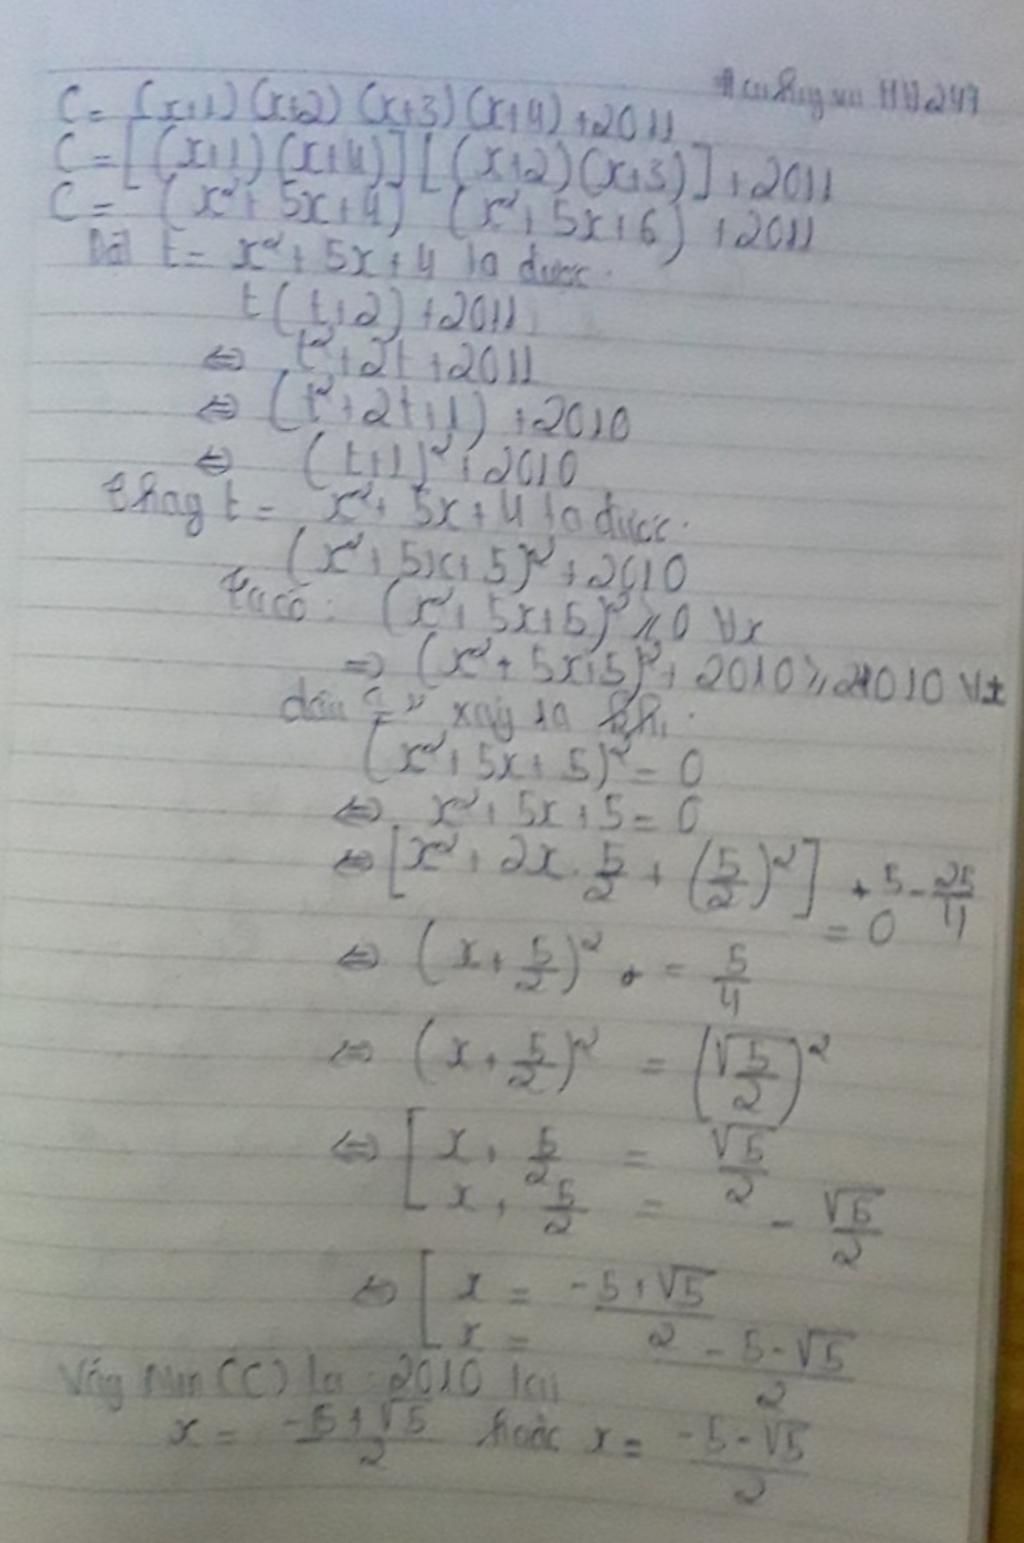 C = (x+1)(x+2)(x+3)(x+4)+2011
C = [(x+1)(x+4)][(x+2)(x+3)]+2011
C = (x²+5x+4) (x²+5x+6) +2011
Đặt t = x²+5x+4 ta được:
t(t+2)+2011
⇔ t²+2t+2011
⇔ (t²+2t+1)+2010
⇔ (t+1)²+2010
thay t = x²+5x+4 ta được:
(x²+5x+5)²+2010
Ta có: (x²+5x+5)² ≥ 0 ∀x
⇒ (x²+5x+5)²+2010 ≥ 2010 ∀x
dấu "=" xảy ra khi:
(x²+5x+5)² = 0
⇔ x²+5x+5 = 0
⇔ [x²+2x.5/2+(5/2)²] + 5 - 25/4 = 0
⇔ (x+5/2)² = 5/4
⇔ (x+5/2)² = (√5/2)²
⇔ [ x+5/2 = √5/2
x+5/2 = -√5/2
⇔ [ x = -5+√5/2
x = -5-√5/2
Vậy Min(C) là 2010 tại
x = -5+√5/2 hoặc x = -5-√5/2